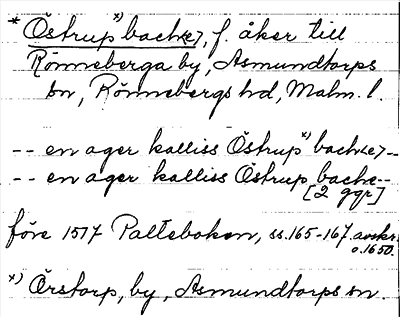 * Östrup x) bach<e>, f. åker till
Rönneberga by, Asmundtorps
sn, Rönnebergs hd, Malm. l.
-- en ager kalliss Östrup x) bach<e> --
-- en ager kalliss Östrup bache --
[2 ggr]
före 1577 Palteboken, ss. 165-167. avskr.
o. 1650.
x) Örstorp, by, Asmundtorps sn.